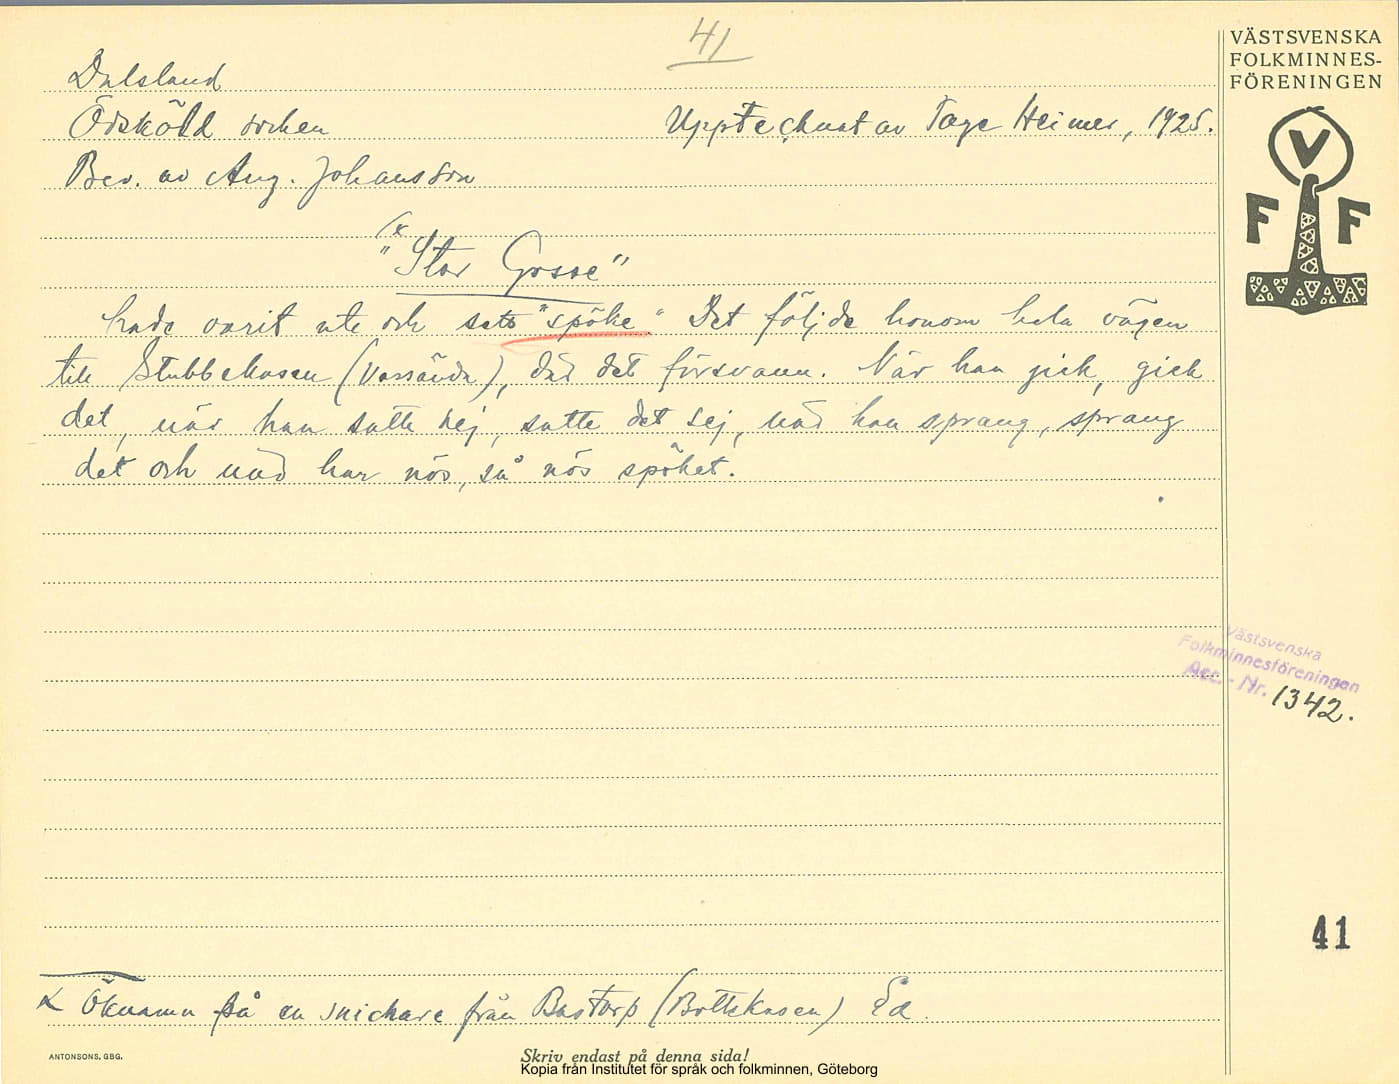 41
VÄSTSVENSKA
FOLKMINNES-
FÖRENINGEN
V
F F
Dalsland
Ödsköld socken
Uppteçknat av Tage Heimer, 1925.
Ber. av Aug. Johansson
(x
"Stor Gosse"
hade varit ute och sett "spöke" Det följde honom hela vägen
till Stubbekasen (Vassända), där det försvann. När han gick, gick
det, när han satte sej, satte det sej, när han sprang, sprang
det och när han nös, så nös spöket.
Västsvenska
Folkminnesföreningen
Acc. - Nr. 1342.
41
x Öknamn på en snickare från Bastorp (Bottekasen) Ed.
ANTONSONS, GBG.
Skriv endast på denna sida!
Kopia från Institutet för språk och folkminnen, Göteborg